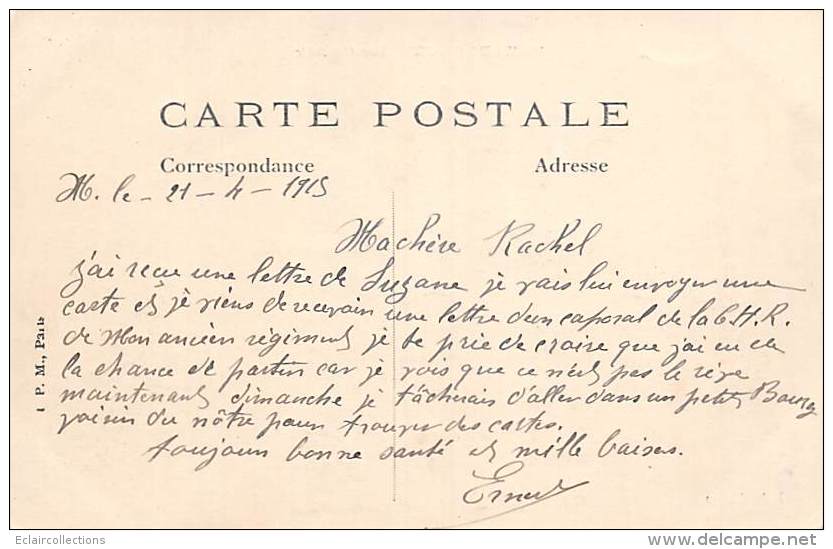 CARTE POSTALE
Correspondance Adresse
M. le - 21 - 4 - 1915
Ma chère Rachel
j'ai recu une lettre de Suzane je vais lui envoyer une
carte et je viens de recevoir une lettre d'un caporal de la C.H.R.
de Mon ancien régiment je te prie de croire que j'ai eu de
la chance de partir car je vois que ce n'est pas le rêve
maintenant dimanche je tâcherais d'aller dans un petit Bourg
voisin du nôtre pour trouver des cartes.
toujours bonne santé et mille baisers.
Ernest
P. M., Paris
Eclaircollections
www.delcampe.net